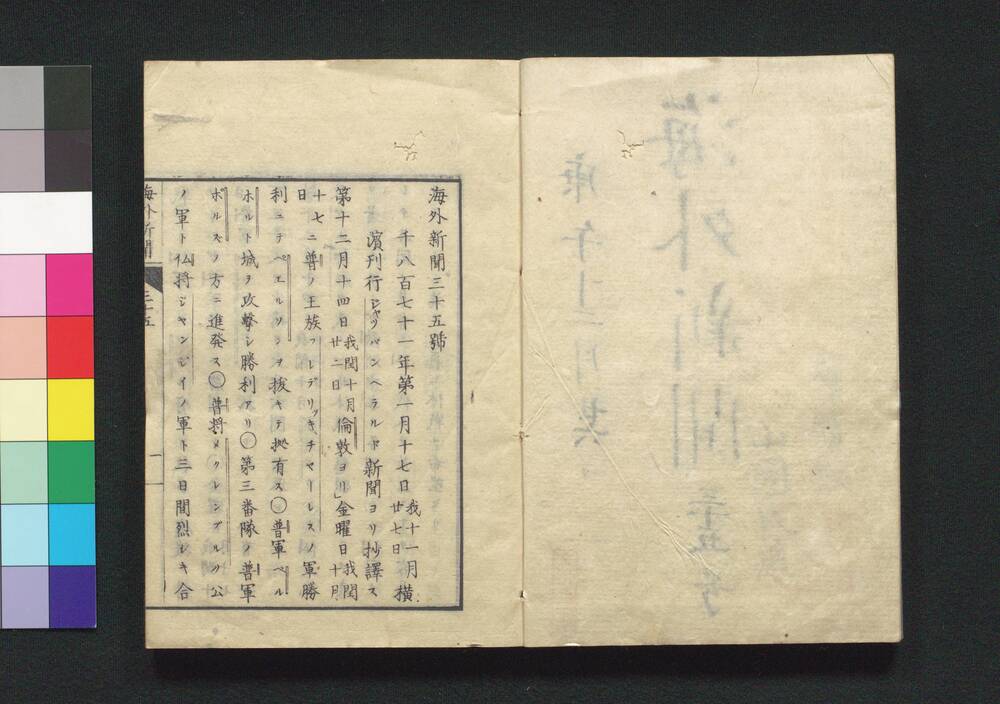 海外新聞三十五號
千八百七十一年第一月十七日我十一月廿七日橫
濱刊行ジヤッパンヘラルド新聞ヨリ抄譯ス
第十二月十四日我閏十月廿二日倫敦ヨリ」金曜日我閏十月
十七日ニ普ノ王族フレデリッキチャーレスノ軍勝
利ニテペエルソンヲ拔キテ拠有ス〇普軍ベル
ホルト城ヲ攻撃シ勝利アリ〇第三番隊ノ普軍
ボルスノ方ニ進発ス〇普将メクレンブルグ公
ノ軍ト仏将ジャンジイノ軍ト三日間烈シキ合
海外新聞
三十五
一